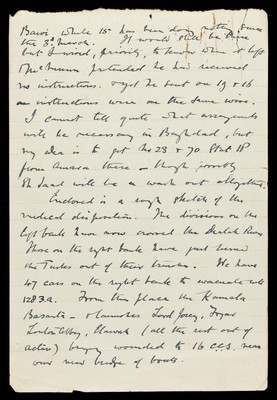 Basio, while 15 has been doing nothing since
the 3rd March. It would still be there
but I wired, priority, to know when it left
McMunn pretended he had received
no instructions. & yet he sent on 19 & 16
as instructions were on the same wire.
I cannot tell quite what arrangements
will be necessary in Baghdad, but
my idea is to put No 23 & 70 Stat H
from Amara there – though possibly
Sh Saad will be a wash out altogether.
Enclosed is a rough sketch of the
medical disposition. The divisions on the
left bank have now crossed the Dialah River
Those on the right bank have just turned
the Turks out of their trenches. We have
47 cars on the right bank to evacuate
From this place the Kamala
Basarta – launches Lord Jersey,
(all the rest out of
action) bring wounded to 16 C.C.S. near
our new bridge of boats.